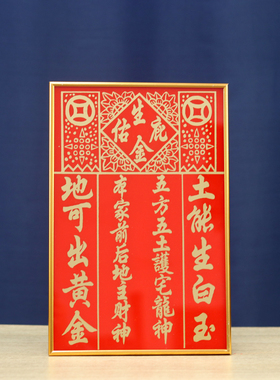 生
鹿
金
土能生白玉
五方五土護宅龍神
家前后地主財神
地可出黄金